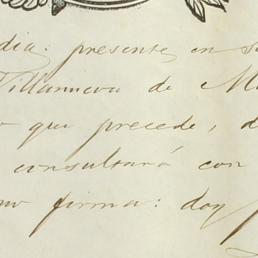 dia: presente en s
Villanueva de M
o que precede, d
consultará con
mo firma: doy f